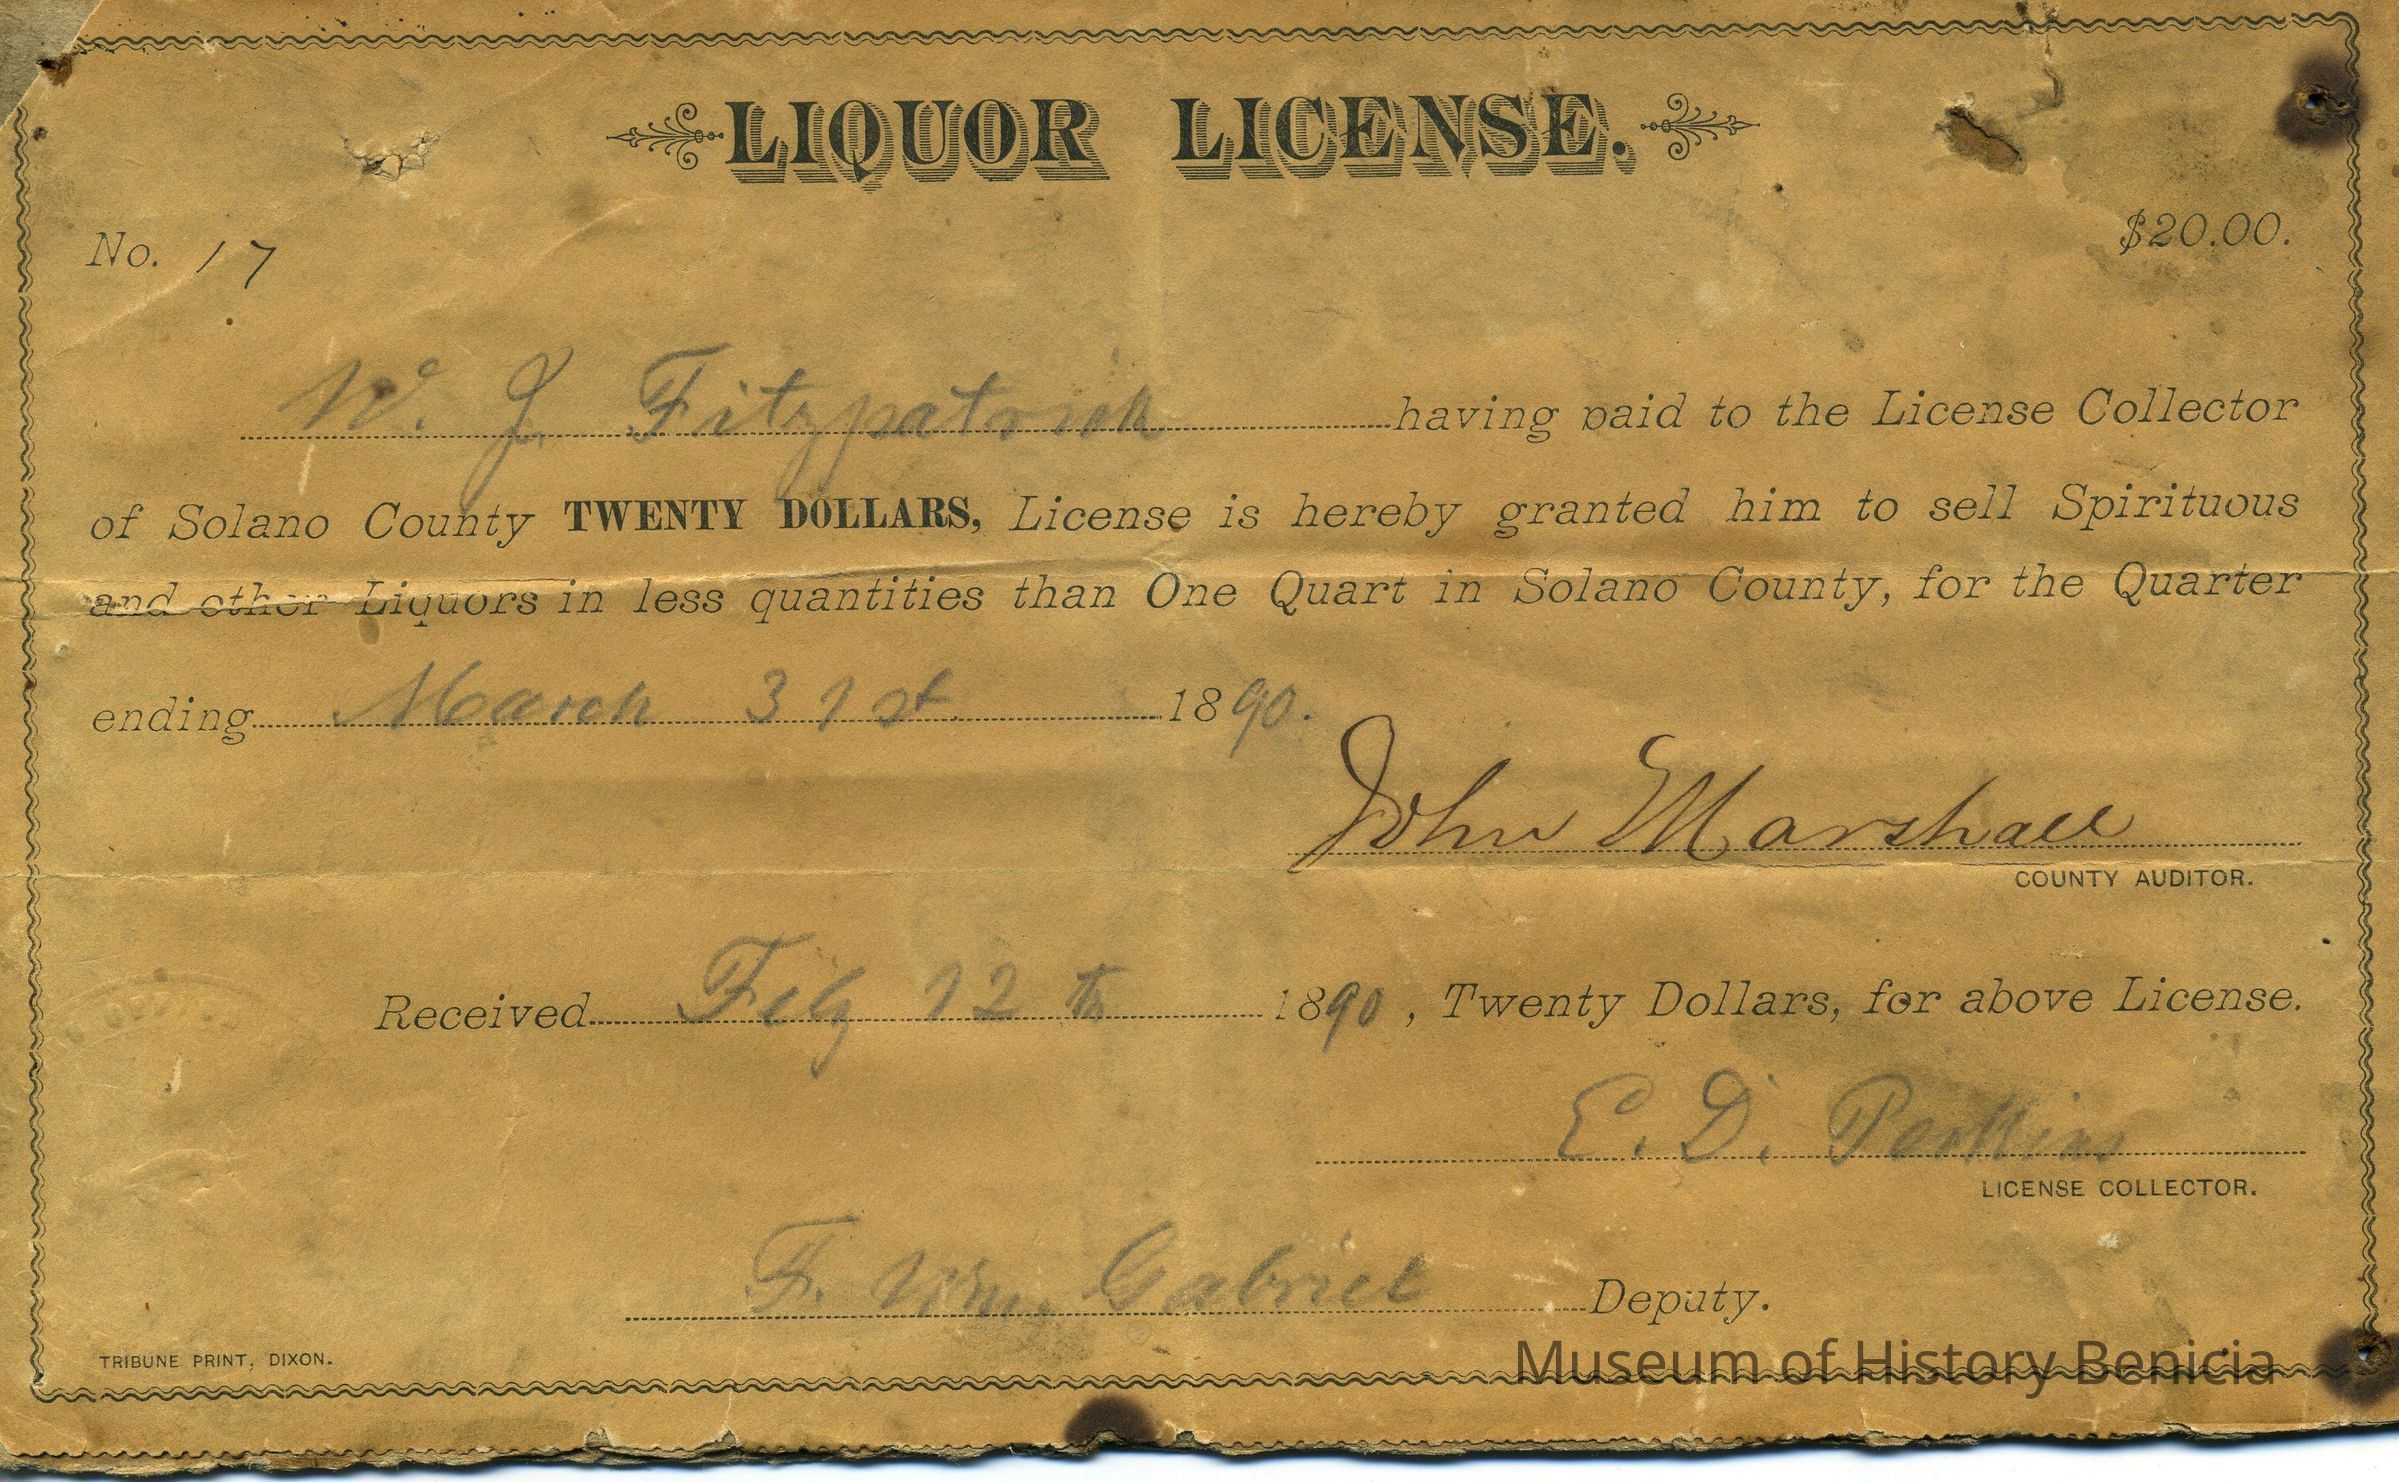 LIQUOR LICENSE.
No. 17 $20.00.
W. J. Fitzpatrick having paid to the License Collector
of Solano County TWENTY DOLLARS, License is hereby granted him to sell Spirituous
and other Liquors in less quantities than One Quart in Solano County, for the Quarter
ending March 31st 1890.
John Marshall
COUNTY AUDITOR.
Received Feby 12th 1890, Twenty Dollars, for above License.
E. D. Perkins
LICENSE COLLECTOR.
F. Wm. Gabriel Deputy.
TRIBUNE PRINT, DIXON.
Museum of History Benicia